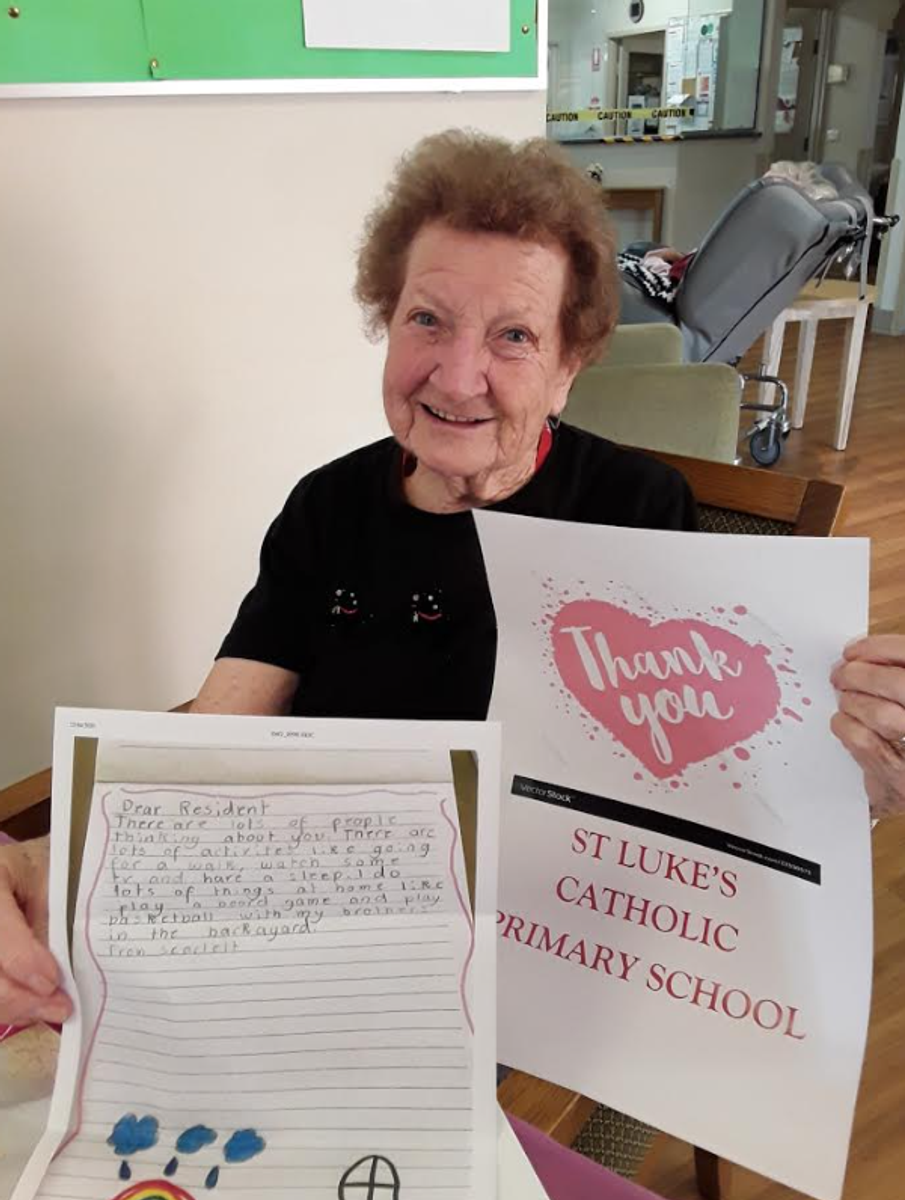 CAUTION CAUTION CAUTION
Thank
you
VectorStock
ST LUKE'S
CATHOLIC
PRIMARY SCHOOL
Dear Resident
There are lots of people
thinking about you. There are
lots of activites like going
for a walk, watch some
tv and have a sleep. I do
lots of things at home like
play a board game and play
basketball with my brothers
in the backayard.
from scarlett